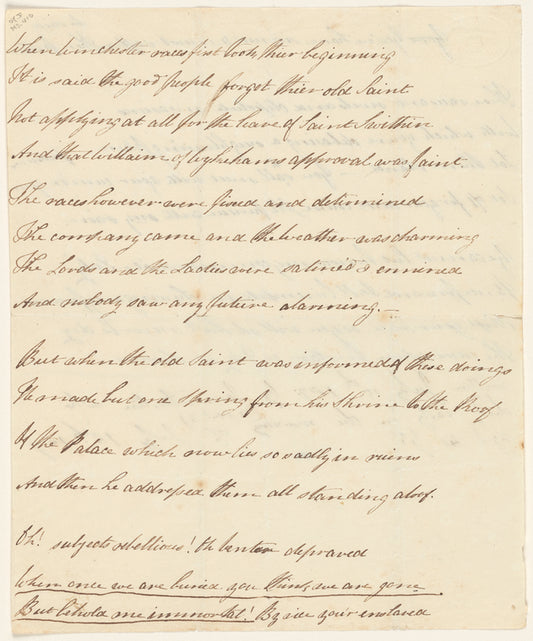 When Winchester races first took their beginning
It is said the good people forgot thier old Saint
Not applying at all for the leave of Saint Swithin
And that William of Wykehams approval was faint.
The races however were fixed and determined
The company came and the Weather was charming
The Lords and the Ladies were satine'd & ermined
And nobody saw any future alarming.
But when the old Saint was informed of these doings
He made but one Spring from his Shrine to the Roof
Of the Palace which now lies so sadly in ruins
And then he addressed them all standing aloof.
Oh! subjects rebellious! Oh Venta depraved
When once we are buried you think we are gone
But behold me immortal! By vice you're enslaved